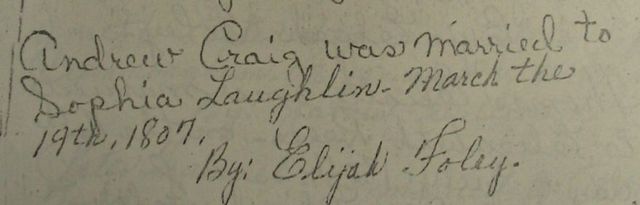 Andrew Craig was married to
Sophia Laughlin - March the
19th, 1807.
By: Elijah Foley.